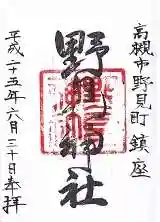 高槻市野見町鎮座
野見神社
平成二十五年六月三十日奉拝